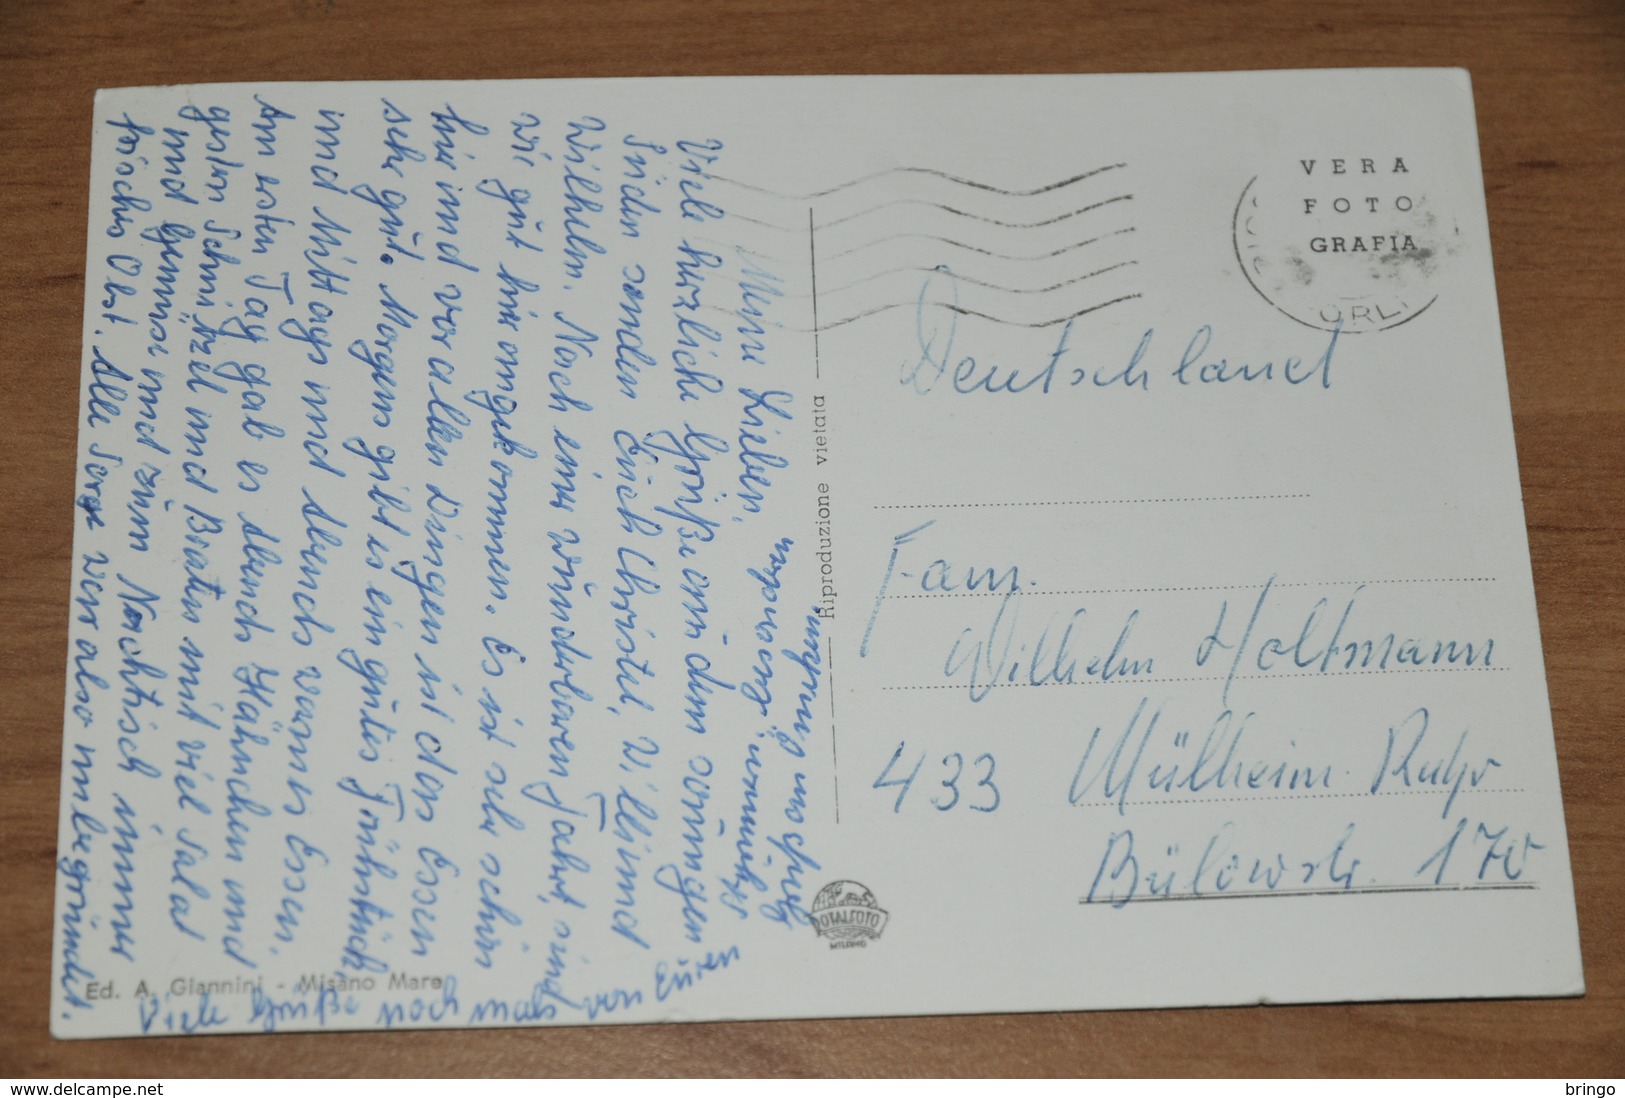 Meine Lieben,
Viele herzliche Grüße aus dem sonnigen
Süden senden Euch Christel, Willi und
Wilhelm. Nach einer wunderbaren Fahrt, sind
wir gut hier angekommen. Es ist sehr schön
hier und vor allen Dingen ist das Essen
sehr gut. Morgens gibt es ein gutes Frühstück
und Mittags und Abends warmes Essen.
Am ersten Tag gab es Abends Hähnchen und
gestern Schnitzel und Braten mit viel Salat
und Gemüse und zum Nachtisch immer
frisches Obst. Alle Sorge war also unbegründet.
Viele Grüße noch mals von Euren
VERA
FOTO
GRAFIA
ORLI
Riproduzione vietata
Deutschland
Fam.
Wilhelm Holtmann
433 Mülheim Ruhr
Bülowstr. 170
TOTALFOTO
MILANO
Ed. A. Giannini - Misano Mare
bringo